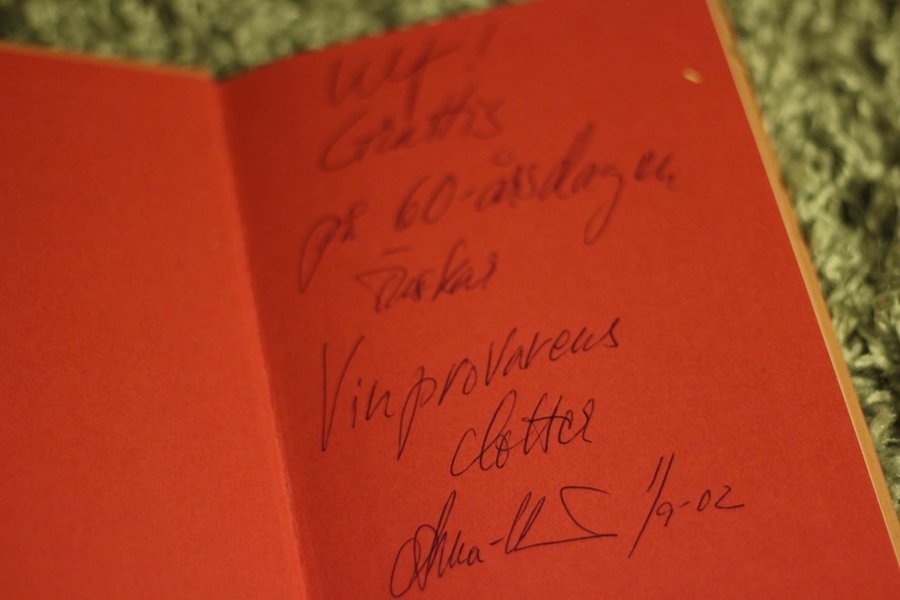 Grattis
på 60-årsdagen
önskar
Vinprovarens
dotter
Anna- 1/9-02